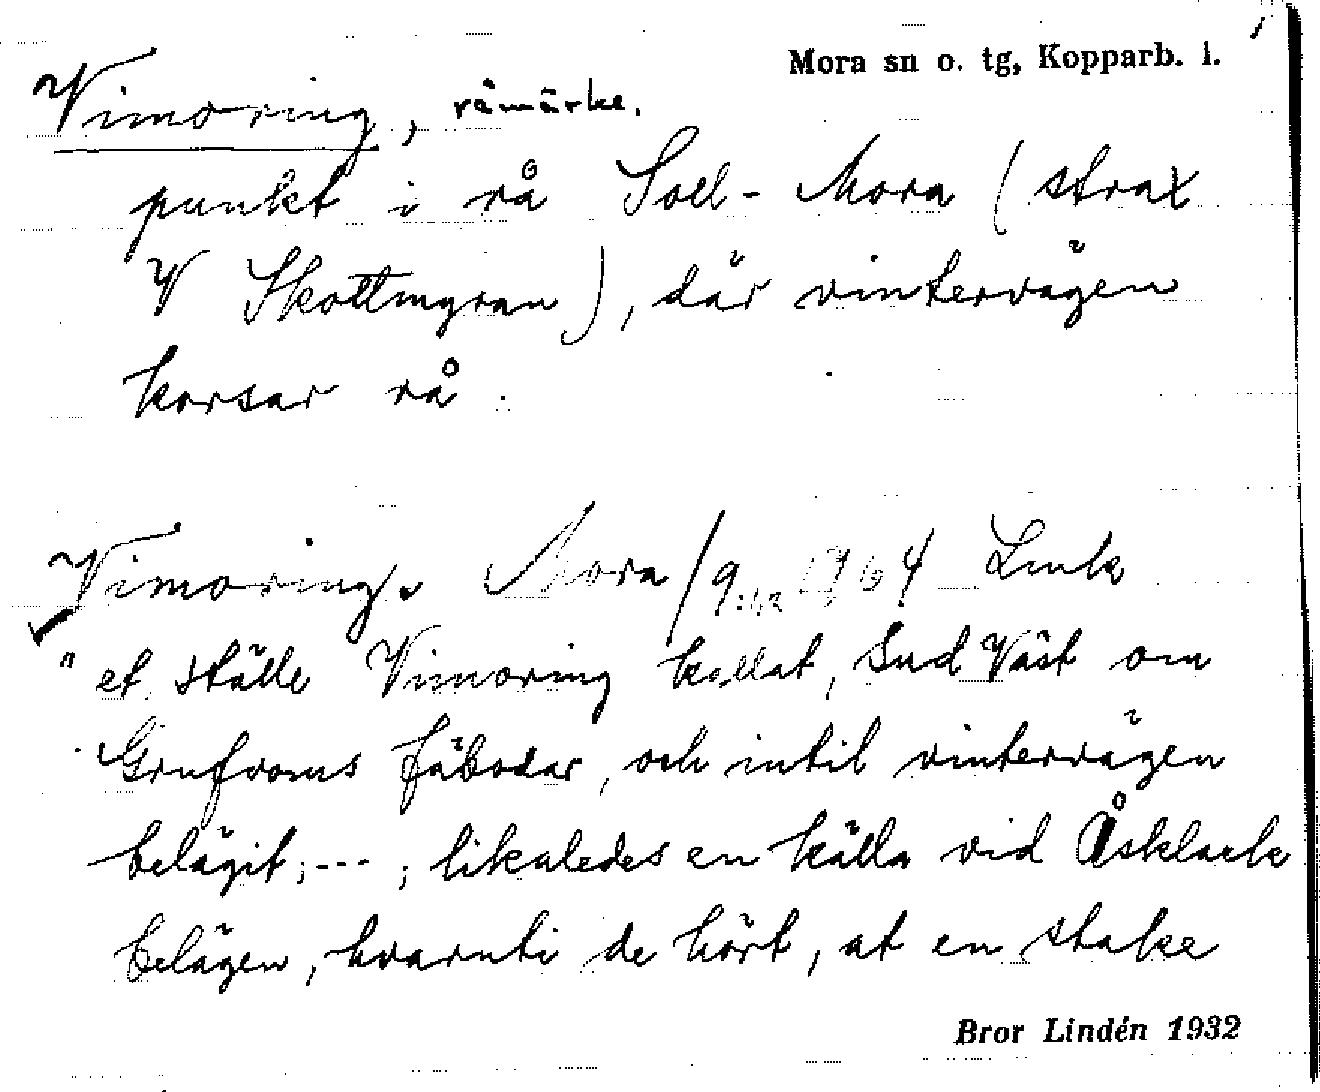 Mora sn o. tg, Kopparb. l.
Vimoring, råmärke.
punkt i rå Soll-Mora (strax
V Skottmyran), där vintervägen
korsar rå.
Vimoring Mora /9 1964 Link
"et ställe Vimoring kallat, Sud Väst om
Grufvorns fäbodar, och intil vintervägen
belägit; --- ; likaledes en källa vid Åsklack
belägen, hvaruti de hört, at en stake
Bror Lindén 1932